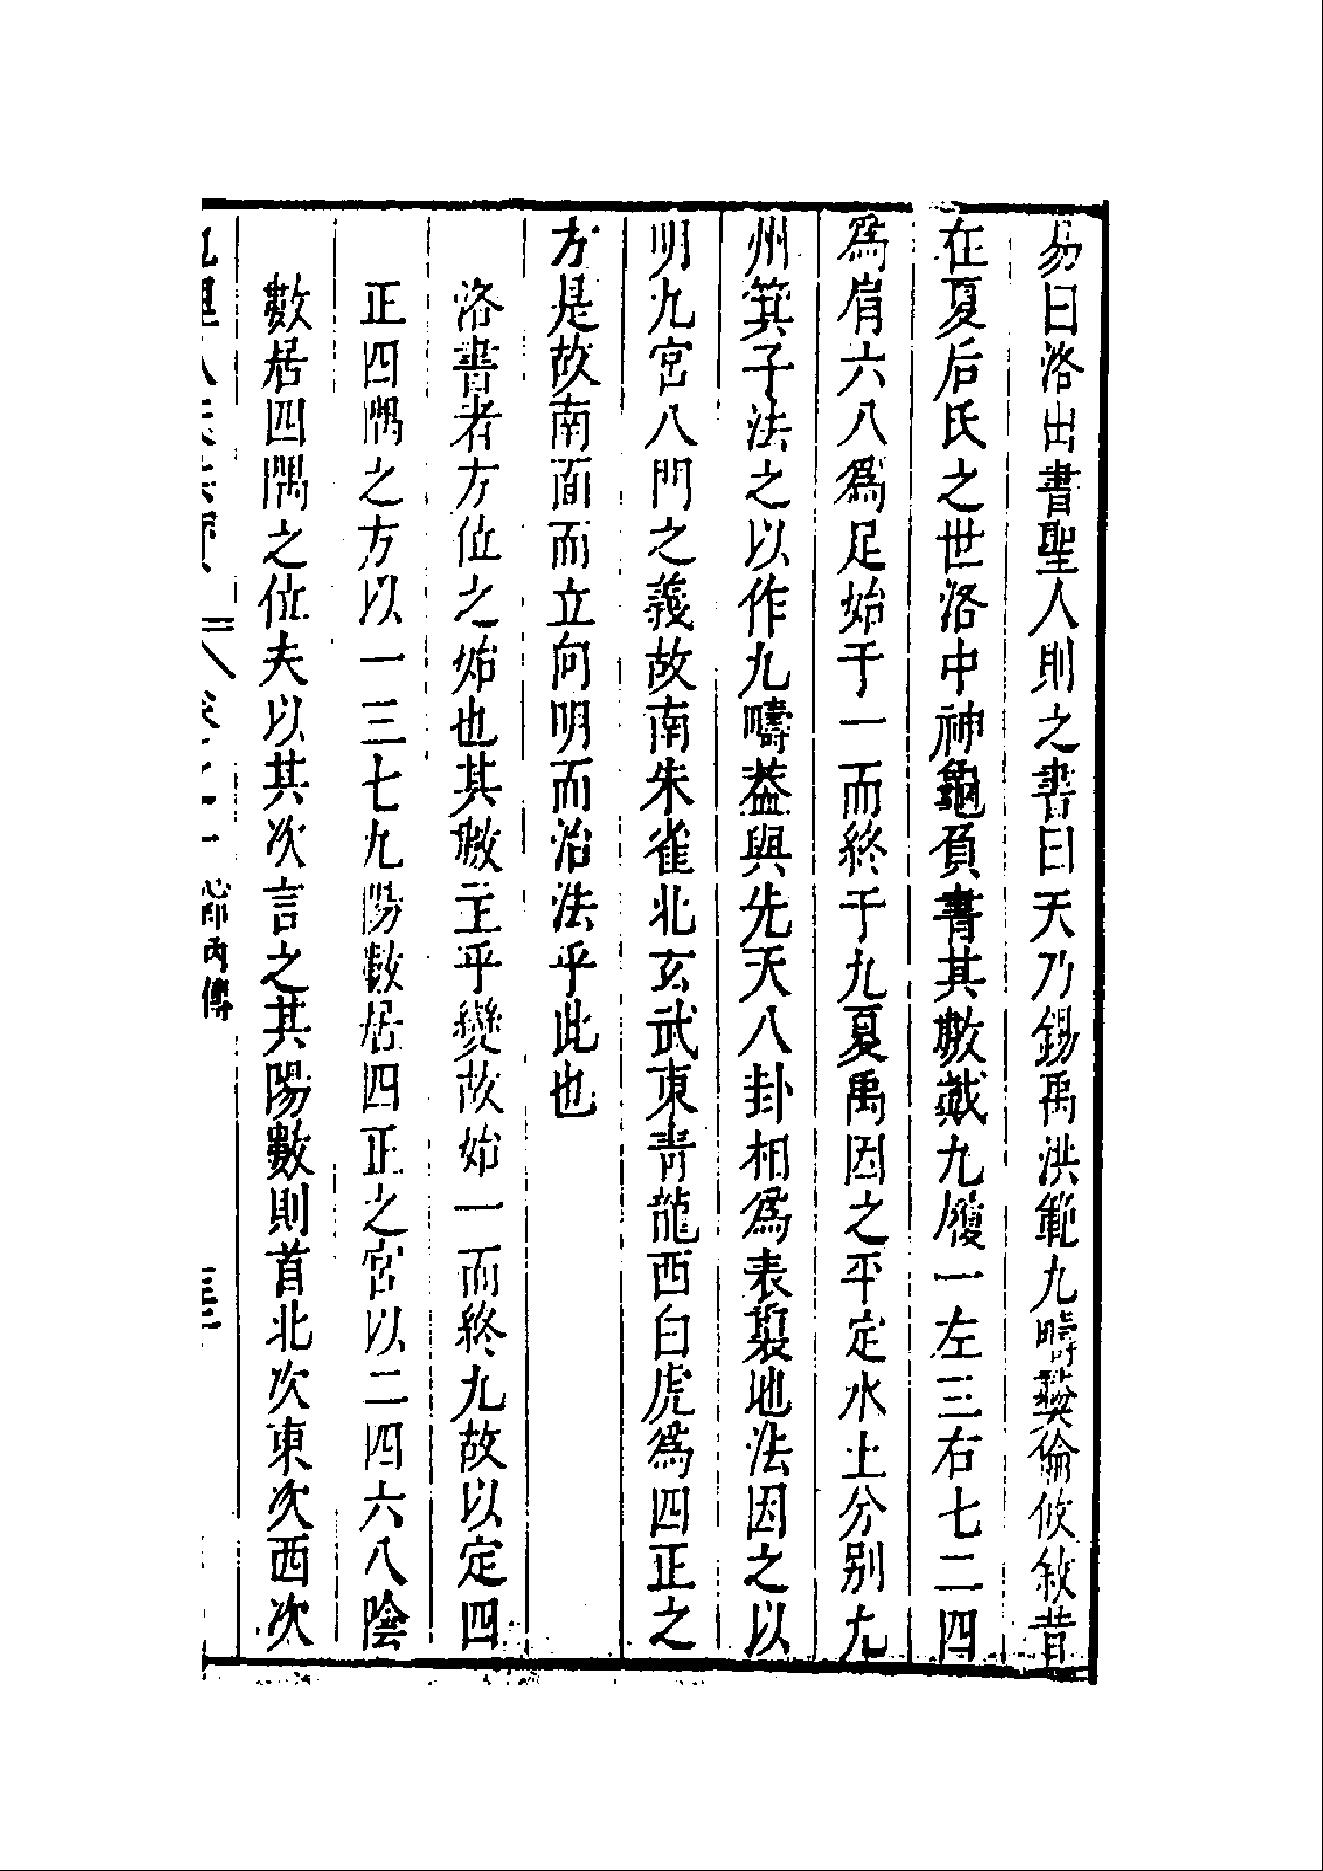 易曰洛出書聖人則之書曰天乃錫禹洪範九疇彝倫攸敘昔
在夏后氏之世洛中神龜負書其數戴九履一左三右七二四
爲肩六八爲足始于一而終于九夏禹因之平定水土分別九
州箕子法之以作九疇蓋與先天八卦相爲表裏地法因之以
明九宮八門之義故南朱雀北玄武東青龍西白虎爲四正之
方是故南面而立向明而治法乎此也
洛書者方位之始也其數主乎變故始一而終九故以定四
正四隅之方以一三七九陽數居四正之宮以二四六八陰
數居四隅之位夫以其次言之其陽數則首北次東次西次